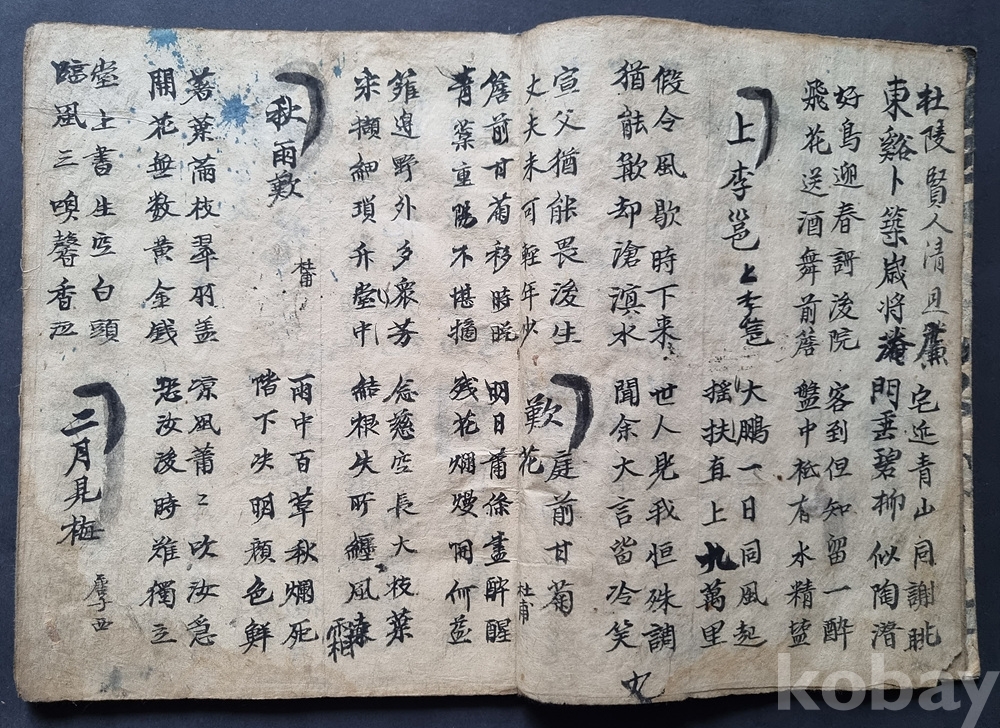 杜陵賢人清且廉
東谿卜築歲將淹
宅近青山同謝眺
門垂碧柳似陶潛
好鳥迎春謌後院
飛花送酒舞前簷
客到但知留一醉
盤中松有水精盐
上李邕
上李邕
大鵬一日同風起
搖扶直上九萬里
假令風歇時下來
猶能歕却滄溟水
世人見我恒殊調
聞余大言皆冷笑
宣父猶能畏後生
丈夫未可輕年少
歎庭前甘菊
花 杜甫
簷前甘菊移時晩
青蘂重陽不堪摘
明日蕭條盡醉醒
残花爛熳開何益
籬邊野外多衆芳
采擷細瑣升堂中
念慈空長大枝葉
結根失所纏風霜
秋雨歎
杜甫
雨中百草秋爛死
階下决明顔色鮮
著葉滿枝翠羽盖
開花無数黃金錢
凉風蕭々吹汝急
恐汝後時難獨立
堂上書生空白頭
臨風三嗅馨香泣
二月見梅
唐子西
kobay